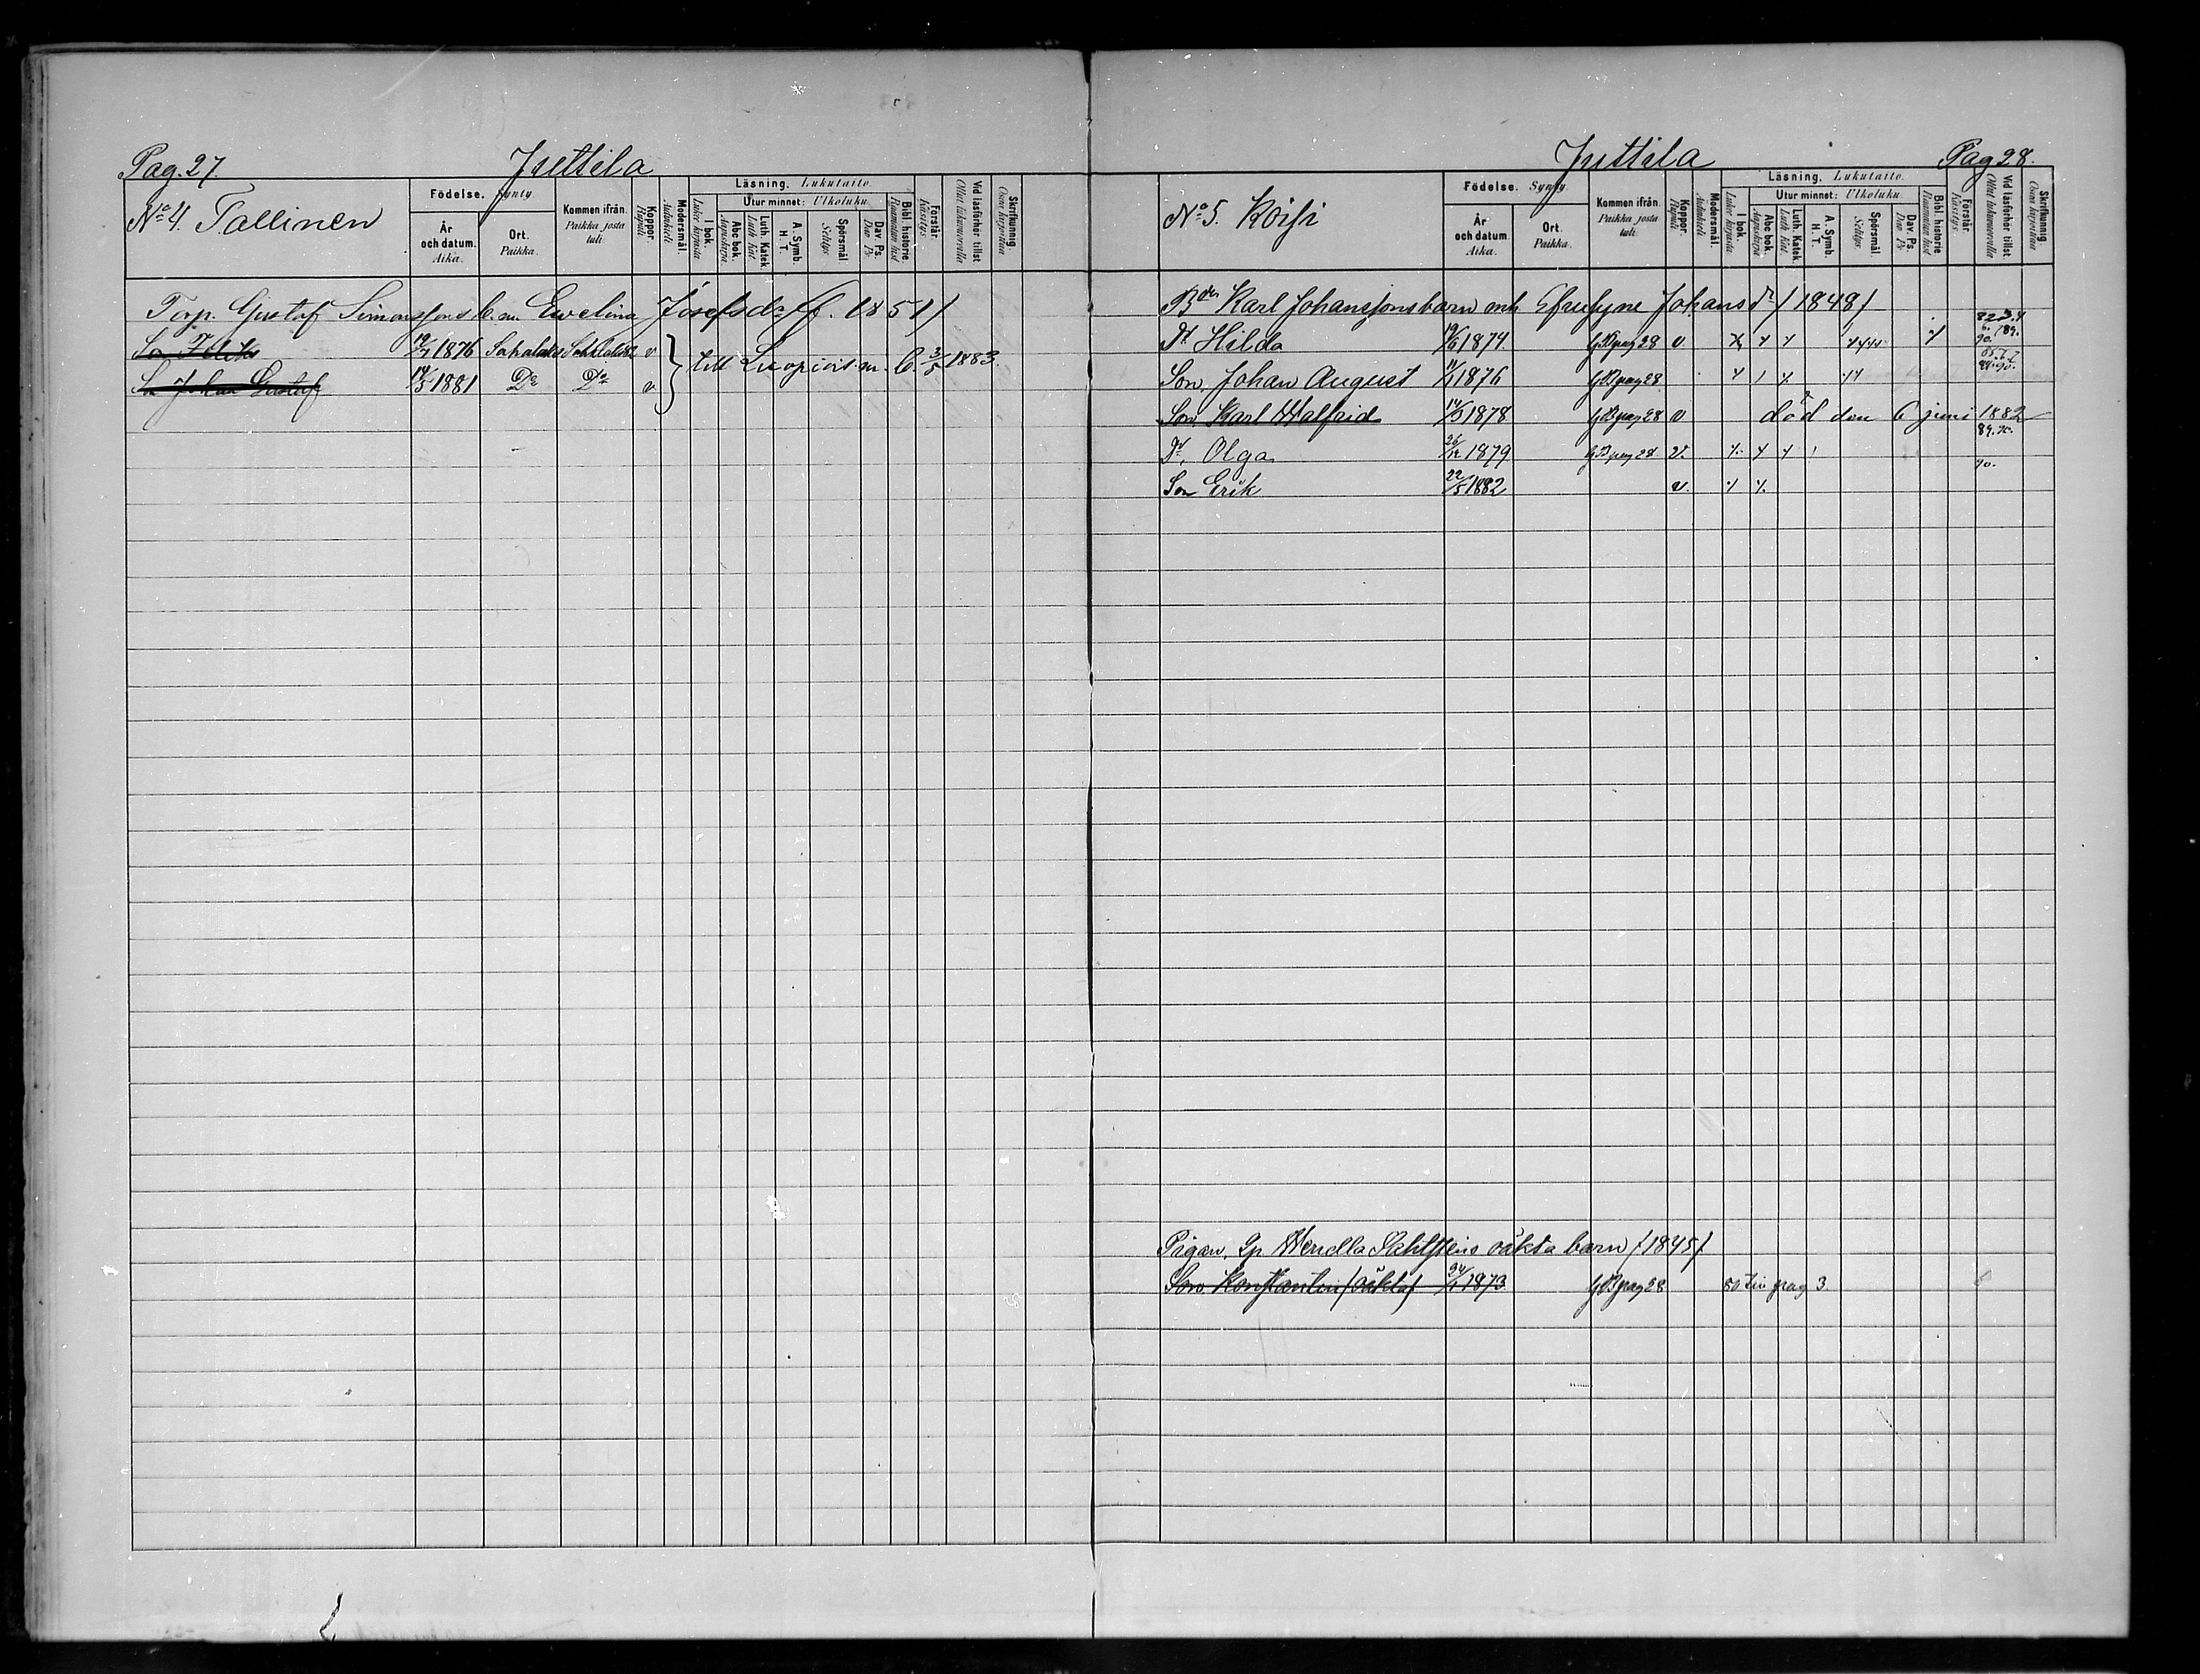 Pag. 27.
Juttila
No 4. Tallinen
Födelse. Synty.
År och datum. Aika.
Ort. Paikka.
Kommen ifrån. Paikka josta tuli.
Koppor. Rupuli
Modersmål. Äidinkieli
Läsning. Lukutaito
I bok. Lukee kirjasta
Utur minnet: Ulkoluku.
Abc bok. Aapiskirja
Luth. Katek. Luth. Kat.
A. Symb. H. T.
Spörsmål Selitys.
Dav. Ps. Dav. Ps.
Bibl. historie. Raamatun hist.
Förstår. Käsitys.
Vid läsförhör tillst. Ollut lukuneuvolla
Skrifkunnig. Osaa kirjoittaa
Torp. Gustaf Simonssons b. m. Ewelina Josefsdr (f. 1851)
Son Feliks 19/7 1876 Sahalaks Sahalaks v
till Luopiois m. b. 3/5 1883.
Son Johan Gustaf 14/5 1881 Do Do v.
Juttila
Pag 28.
No 5. Koisi
Födelse. Synty.
År och datum. Aika.
Ort. Paikka.
Kommen ifrån. Paikka josta tuli.
Koppor. Rupuli
Modersmål. Äidinkieli
Läsning. Lukutaito.
I bok. Lukee kirjasta
Utur minnet: Ulkoluku
Abc bok. Aapiskirja
Luth. Katek. Luth. Kat.
A. Symb. H. T.
Spörsmål. Selitys.
Dav. Ps. Dav. Ps.
Bibl. historie Raamatun hist
Förstår. Käsitys.
Vid läsförhör tillst. Ollut lukuneuvolla
Skrifkunnig. Osaa kirjoittaa
Bden Karl Johanssons barn m. Johans dr / 1848 /
Dr Hilda 19/6 1874. GB pag 28 v
Son, Johan August 11/1 1876 GB pag 28.
Son, Karl Walfrid 14/3 1878 GB pag 28 v död den 6 juni 1882
89. 90.
Dr, Olga 26/12 1879 GB pag 28 v.
90.
Son Erik 22/5 1882 v.
Pigan, Wendla Dahlstens oäkta barn / 1845 /
Son Konstantin (oäkta) 24/1 1873 GB pag 28 pag 3.